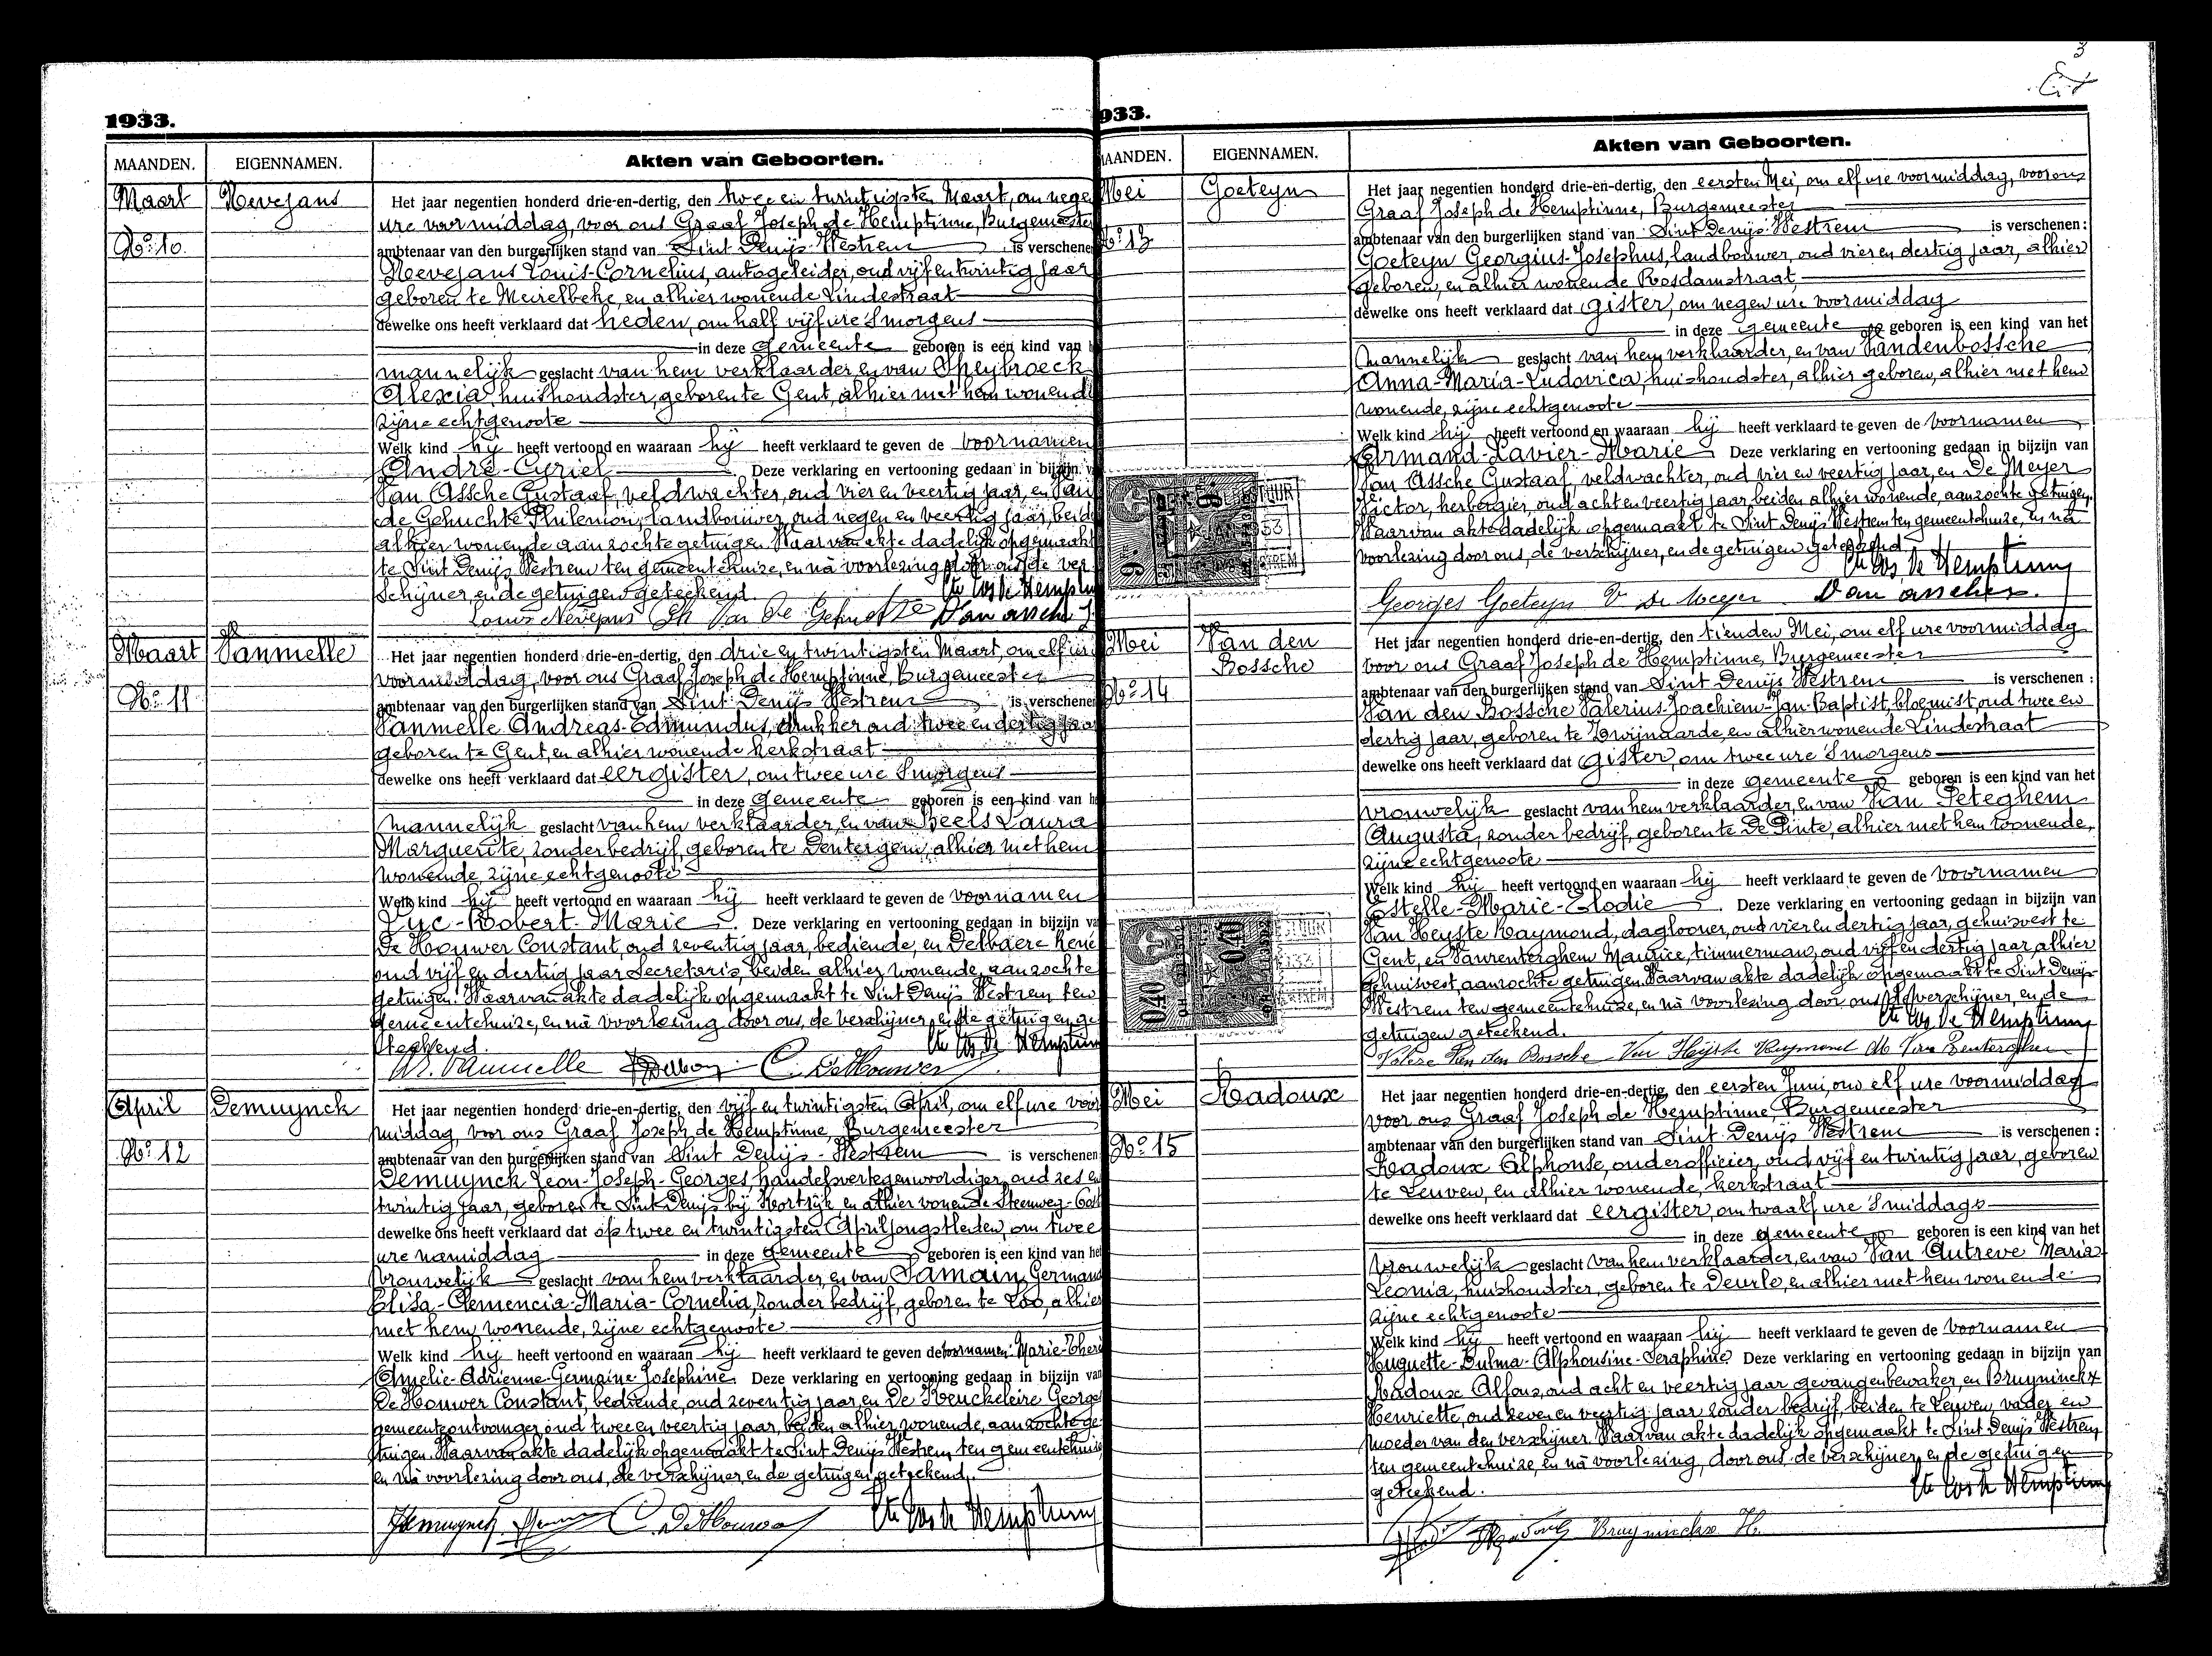 1933.
MAANDEN.
EIGENNAMEN.
Akten van Geboorten.
Maart
Nevejans
No 10.
Het jaar negentien honderd drie-en-dertig, den twee en twintigsten Maart, om nege
ure voormiddag, voor ons Graaf Joseph de Hemptinne, Burgemeester
ambtenaar van den burgerlijken stand van Sint Denijs Westrem is verschene
Nevejans Louis-Cornelius, autogeleider, oud vijf en twintig jaar
geboren te Meirelbeke, en alhier wonende Lindestraat
dewelke ons heeft verklaard dat heden, om half vijf ure 's morgens
in deze gemeente geboren is een kind van
mannelijk geslacht van hem verklaarder en van Speybroeck
Alexia, huishoudster, geboren te Gent, alhier met hem wonende
zijne echtgenoote
Welk kind hij heeft vertoond en waaraan hij heeft verklaard te geven de voornamen
André-Cyriel Deze verklaring en vertooning gedaan in bijzijn v
Van Assche Gustaaf, veldwachter, oud vier en veertig jaar, en Van
de Gehuchte Philemon, landbouwer, oud negen en veertig jaar, beide
alhier wonende aanzochte getuigen. Waarvan akte dadelijk opgemaakt
te Sint Denijs Westrem ten gemeentehuize, en nà voorlezing door ons, de ver
schijner, en de getuigen geteekend.
Cte Jos de Hemptinne
Louis Nevejans Ph Van De Gehuchte Van assche G
Maart
Vanmelle
No 11
Het jaar negentien honderd drie-en-dertig, den drie en twintigsten Maart, om elf ure
voormiddag, voor ons Graaf Joseph de Hemptinne, Burgemeester
ambtenaar van den burgerlijken stand van Sint Denijs Westrem is verschenen
Vanmelle Andreas-Edmundus, drukker oud twee en dertig jaar
geboren te Gent, en alhier wonende Kerkstraat
dewelke ons heeft verklaard dat eergister, om twee ure 's morgens
in deze gemeente geboren is een kind van h
mannelijk geslacht van hem verklaarder, en van Beels Laura
Marguerite, zonder bedrijf, geboren te Dentergem, alhier met hem
wonende, zijne echtgenoote
Welk kind hij heeft vertoond en waaraan hij heeft verklaard te geven de voornamen
Luc-Robert-Marie Deze verklaring en vertooning gedaan in bijzijn va
De Houwer Constant, oud zeventig jaar, bediende, en Delbaere René
oud vijf en dertig jaar Secretaris, beiden alhier wonende, aanzochte
getuigen. Waarvan akte dadelijk opgemaakt te Sint Denijs Westrem ten
gemeentehuize, en nà voorlezing door ons, de verschijner, en de getuigen ge
teekend.
Cte Jos de Hemptinne
Vanmelle C. DeHouwer
April
Demuynck
No 12
Het jaar negentien honderd drie-en-dertig, den vijf en twintigsten April, om elf ure voor
middag, voor ons Graaf Joseph de Hemptinne Burgemeester
ambtenaar van den burgerlijken stand van Sint Denijs-Westrem is verschenen
Demuynck Leon-Joseph-Georges handelsvertegenwoordiger, oud zes en
twintig jaar, geboren te Sint Denijs bij Kortrijk, en alhier wonende Steenweg-
dewelke ons heeft verklaard dat op twee en twintigsten April jongstleden, om twee
ure namiddag in deze gemeente geboren is een kind van het
vrouwelijk geslacht van hem verklaarder, en van Samain Germana
Elisa-Clemencia-Maria-Cornelia, zonder bedrijf, geboren te Loo, alhier
met hem wonende, zijne echtgenoote
Welk kind hij heeft vertoond en waaraan hij heeft verklaard te geven de voornamen: Marie-Ther
Amelie-Adrienne-Germaine-Josephine. Deze verklaring en vertooning gedaan in bijzijn van
De Houwer Constant, bediende, oud zeventig jaar, en De Keuckeleire George
gemeenteontvanger, oud twee en veertig jaar, beiden alhier wonende, aanzochte ge
tuigen. Waarvan akte dadelijk opgemaakt te Sint Denijs Westrem, ten gemeentehuize
en nà voorlezing door ons, de verschijner en de getuigen geteekend.
Demuynck C. DeHouwer Cte Jos de Hemptinne
3
933.
MAANDEN.
EIGENNAMEN.
Akten van Geboorten.
Mei
Goeteyn
No 13
Het jaar negentien honderd drie-en-dertig, den eersten Mei, om elf ure voormiddag, voor ons
Graaf Joseph de Hemptinne, Burgemeester
ambtenaar van den burgerlijken stand van Sint Denijs Westrem is verschenen:
Goeteyn Georgius-Josephus, landbouwer, oud vier en dertig jaar, alhier
geboren, en alhier wonende Rosdamstraat,
dewelke ons heeft verklaard dat gister, om negen ure voormiddag
in deze gemeente geboren is een kind van het
mannelijk geslacht van hem verklaarder, en van Vandenbossche
Anna-Maria-Ludovica, huishoudster, alhier geboren, alhier met hem
wonende, zijne echtgenoote
Welk kind hij heeft vertoond en waaraan hij heeft verklaard te geven de voornamen
Armand-Xavier-Marie Deze verklaring en vertooning gedaan in bijzijn van
Van Assche Gustaaf, veldwachter, oud vier en veertig jaar, en De Meyer
Victor, herbergier, oud acht en veertig jaar beiden alhier wonende, aanzochte getuigen.
Waarvan akte dadelijk opgemaakt te Sint Denijs Westrem ten gemeentehuize, en nà
voorlezing door ons, de verschijner, en de getuigen geteekend
Cte Jos. de Hemptinne
Georges Goeteyn V De Meyer Van assche G.
Mei
Van den
Bossche
No 14
0.40
0.40
Het jaar negentien honderd drie-en-dertig, den tienden Mei, om elf ure voormiddag
voor ons Graaf Joseph de Hemptinne, Burgemeester
ambtenaar van den burgerlijken stand van Sint Denijs Westrem is verschenen :
Van den Bossche Valerius-Joachiem-Jan-Baptist, bloemist, oud twee en
dertig jaar, geboren te Zwijnaarde, en alhier wonende Lindestraat
dewelke ons heeft verklaard dat gister, om twee ure 's morgens
in deze gemeente geboren is een kind van het
vrouwelijk geslacht van hem verklaarder, en van Van Peteghem
Augusta, zonder bedrijf, geboren te De Pinte, alhier met hem wonende,
zijne echtgenoote
Welk kind hij heeft vertoond en waaraan hij heeft verklaard te geven de voornamen
Estelle-Marie-Elodie Deze verklaring en vertooning gedaan in bijzijn van
Van Heyste Raymond, daglooner, oud vier en dertig jaar, gehuisvest te
Gent, en Vanrenterghem Maurice, timmerman, oud vijf en dertig jaar, alhier
gehuisvest, aanzochte getuigen. Waarvan akte dadelijk opgemaakt te Sint Denijs
Westrem ten gemeentehuize, en nà voorlezing door ons, de verschijner, en de
getuigen geteekend.
Cte Jos de Hemptinne
Valere Van den Bossche Van Heyste Raymond M Van Renterghem
Mei
Radoux
No 15
Het jaar negentien honderd drie-en-dertig, den eersten Juni, om elf ure voormiddag
voor ons Graaf Joseph de Hemptinne, Burgemeester
ambtenaar van den burgerlijken stand van Sint Denijs Westrem is verschenen :
Radoux Alphonse, onderofficier, oud vijf en twintig jaar, geboren
te Leuven, en alhier wonende, Kerkstraat
dewelke ons heeft verklaard dat eergister, om twaalf ure 's middags
in deze gemeente geboren is een kind van het
vrouwelijk geslacht van hem verklaarder, en van Van Autreve Maria
Leonia, huishoudster, geboren te Deurle, en alhier met hem wonende
zijne echtgenoote
Welk kind hij heeft vertoond en waaraan hij heeft verklaard te geven de voornamen
Huguette-Dulma-Alphonsine-Seraphine. Deze verklaring en vertooning gedaan in bijzijn van
Radoux Alfons, oud acht en veertig jaar gevangenbewaker, en Bruyninckx
Henriette, oud zeven en veertig jaar zonder bedrijf, beiden te Leuven, vader en
moeder van den verschijner. Waarvan akte dadelijk opgemaakt te Sint Denijs Westrem
ten gemeentehuize, en nà voorlezing, door ons, de verschijner, en de getuigen
geteekend.
Cte Jos de Hemptinne
Bruyninckx H.